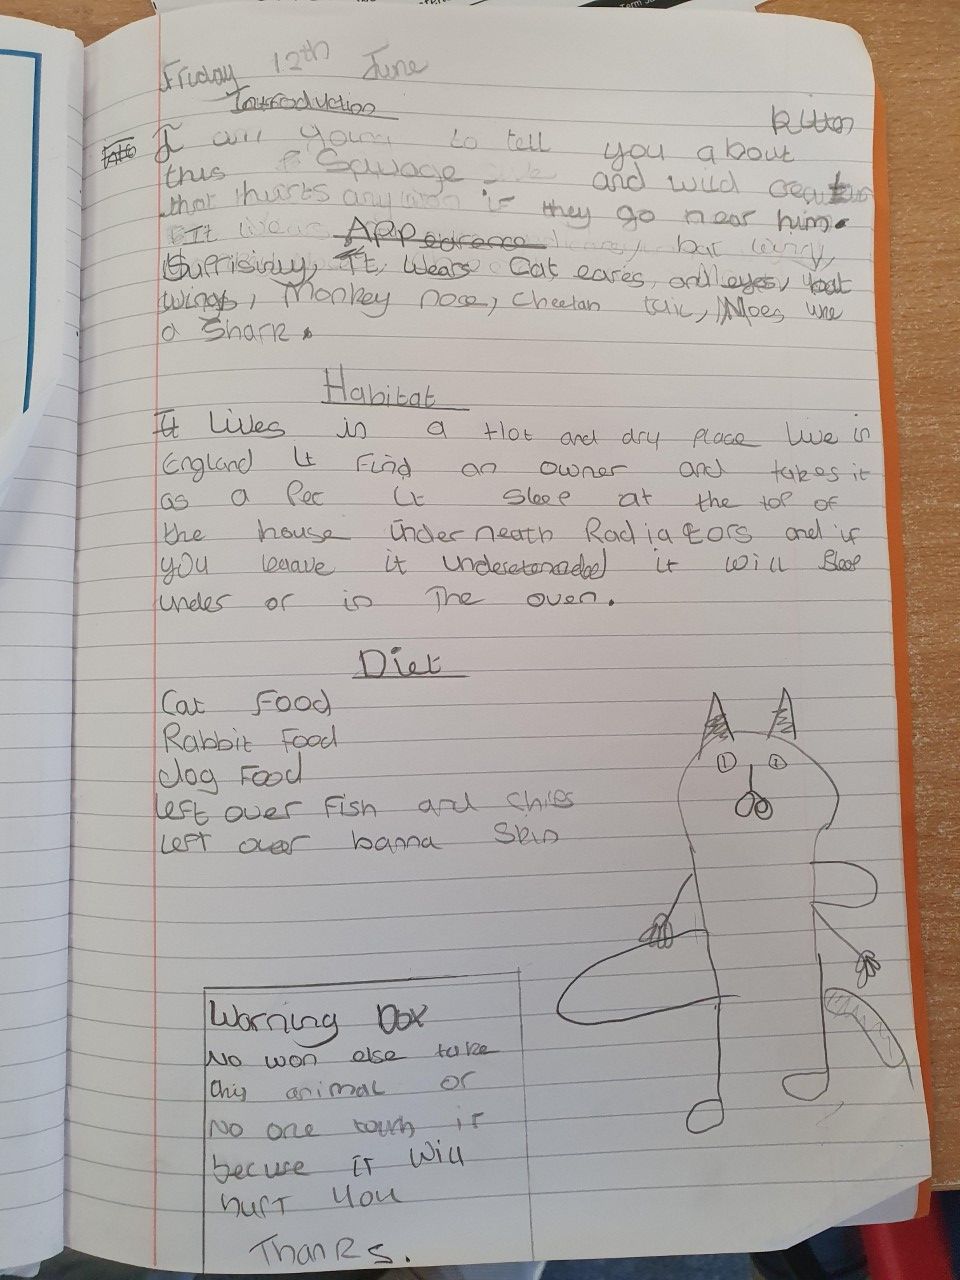 Friday 12th June
Introduction
I am going to tell you about
this Savage and wild creature
that hurts any won if they go near him.
Appearence
Surprisinly, It Wears Cat eares, and eyes, bat
wings, Monkey nose, Cheetah tail, Moes like
a Shark.
Habitat
It Lives in a Hot and dry place live in
England It Find an owner and takes it
as a Pet It Sleep at the top of
the house underneath Radiators and if
you leaave it it will Sleep
under or in The oven.
Diet
Cat Food
Rabbit Food
dog Food
left over Fish and Chips
left over banna Skin
Warning Box
No won else take
this animal or
No one touch it
becuse it Will
hurt You
Thanks.